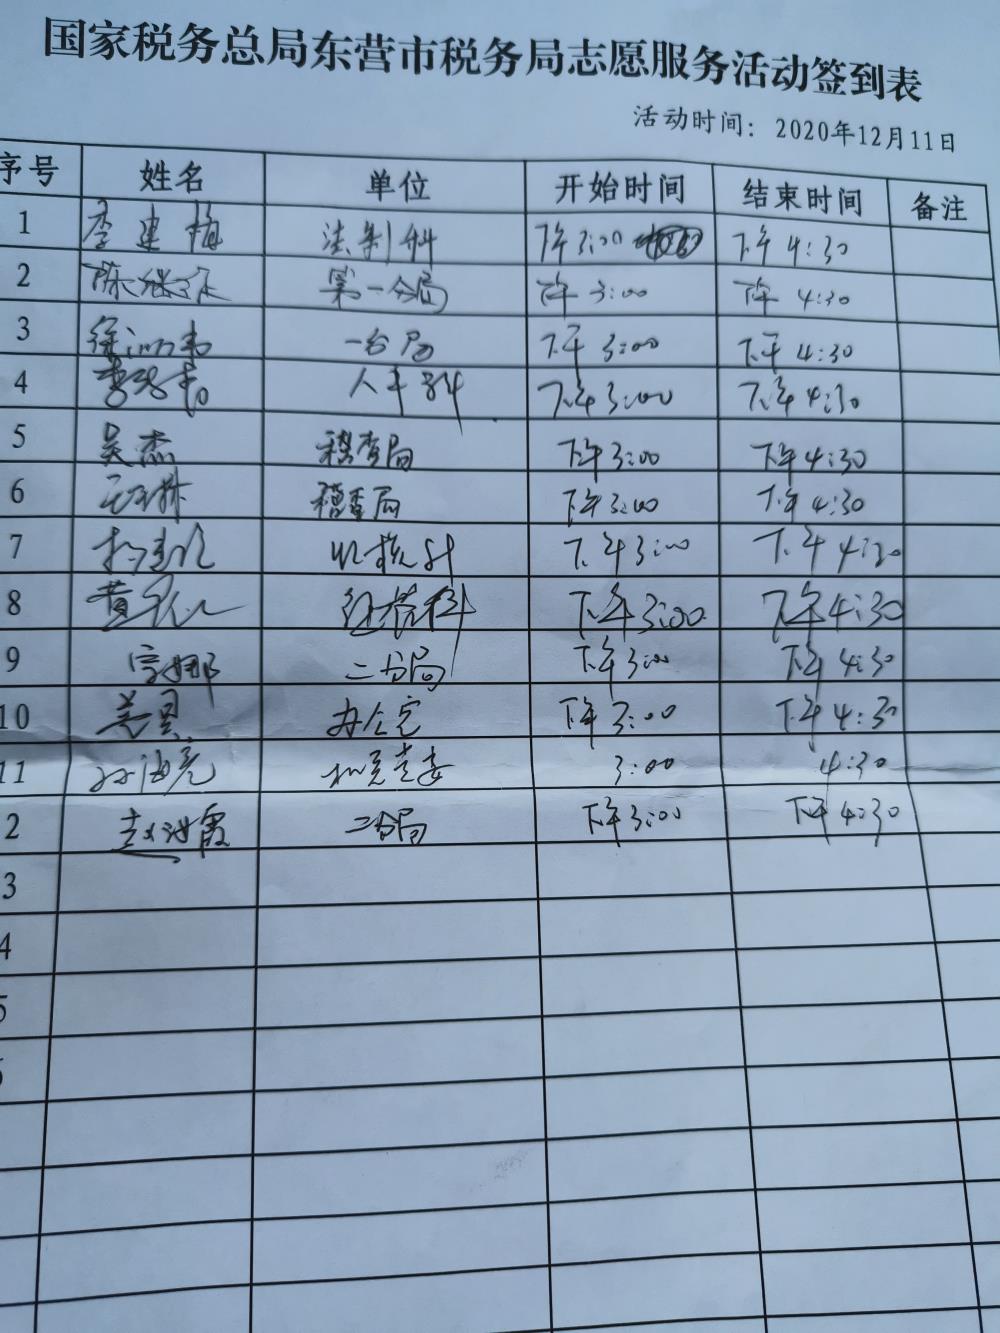 国家税务总局东营市税务局志愿服务活动签到表
活动时间：2020年12月11日
序号 姓名 单位 开始时间 结束时间 备注
1 李建梅 法制科 下午3:00 下午4:30
2 陈继 第一分局 下午3:00 下午4:30
3 徐 一分局 下午3:00 下午4:30
4 下午3:00 下午4:30
5 吴杰 稽查局 下午3:00 下午4:30
6 稽查局 下午3:00 下午4:30
7 下午3:00 下午4:30
8 黄 科 下午3:00 下午4:30
9 娜 二分局 下午3:00 下午4:30
10 办公室 下午3:00 下午4:30
11 孙海亮 机关党委 3:00 4:30
2 赵 霞 二分局 下午3:00 下午4:30
3
4
5